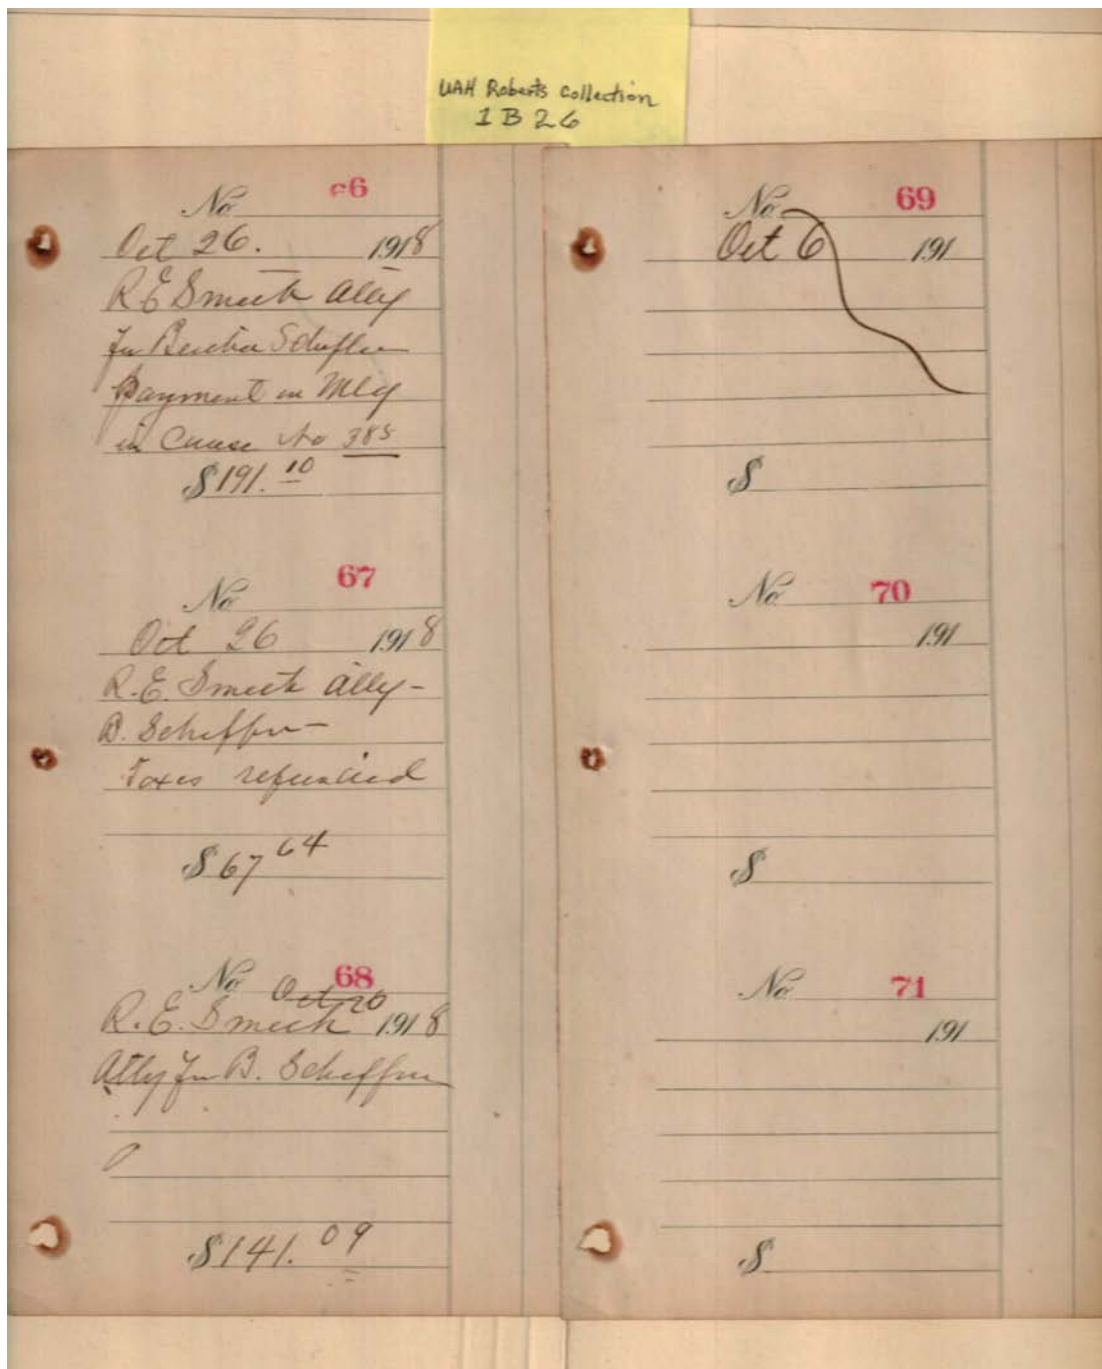 UAH Roberts Collection
1B26
No 66
Oct 26. 1918
R E Smith Atty
for Schiffer
Payment in
in Cause No 385
$191.10
No 67
Oct 26 1918
R.E. Smith Atty-
B. Schiffer-
Taxes refunded
$67 64
No 68
Oct 26
R.E. Smith 1918
Atty for B. Schiffer
$141.09
No 69
Oct 6 191
$
No 70
191
$
No 71
191
$